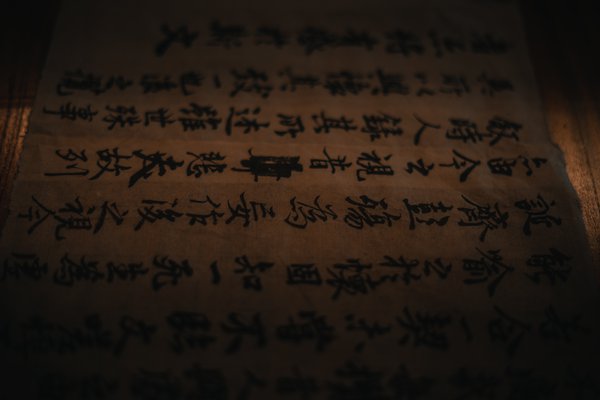 若合一契未嘗不臨文嗟悼
能喻之於懷固知一死生為虛
誕齊彭殤為妄作後之視今
亦由今之視昔悲夫故列
敘時人錄其所述雖世殊事
異所以興懷其致一也後之攬
者亦將有感於斯文